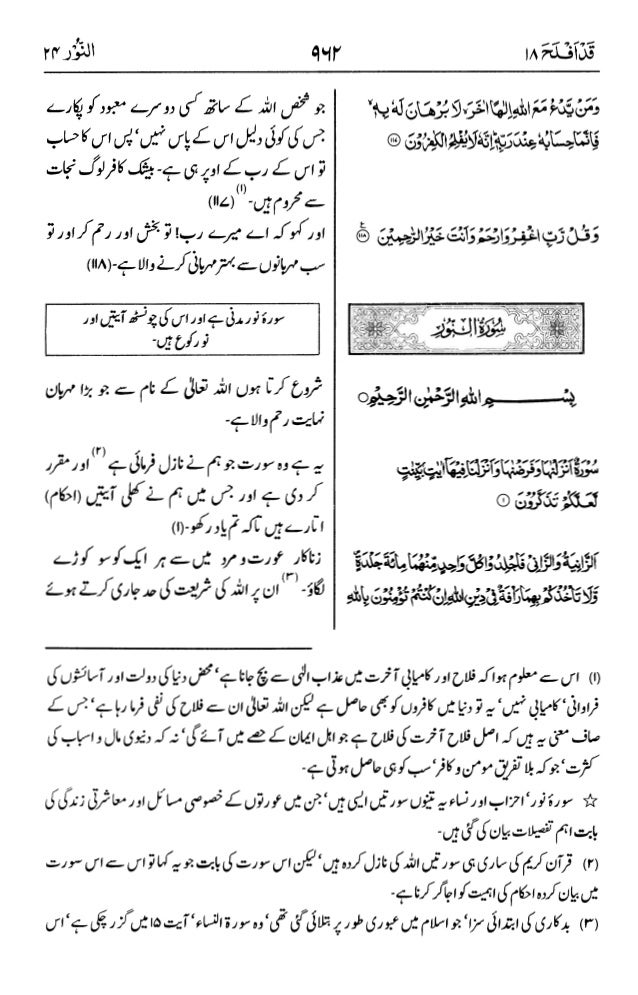 قَدْ اَفْلَحَ ۱۸
۹۶۲
النُّوْر ۲۴
وَمَنْ يَّدْعُ مَعَ اللهِ اِلٰهًا اٰخَرَ لَا بُرْهَانَ لَهٗ بِهٖ
فَاِنَّمَا حِسَابُهٗ عِنْدَ رَبِّهٖ اِنَّهٗ لَا يُفْلِحُ الْكٰفِرُوْنَ ۱۱۷
وَقُلْ رَّبِّ اغْفِرْ وَارْحَمْ وَاَنْتَ خَيْرُ الرّٰحِمِيْنَ ۱۱۸
جو شخص اللہ کے ساتھ کسی دوسرے معبود کو پکارے
جس کی کوئی دلیل اس کے پاس نہیں، پس اس کا حساب
تو اس کے رب کے اوپر ہی ہے۔ بیشک کافر لوگ نجات
سے محروم ہیں۔ (۱) (۱۱۷)
اور کہو کہ اے میرے رب! تو بخش اور رحم کر اور تو
سب مہربانوں سے بہتر مہربانی کرنے والا ہے۔ (۱۱۸)
سُوْرَةُ النُّوْرِ
سورۂ نور مدنی ہے اور اس کی چونسٹھ آیتیں اور
نو رکوع ہیں۔
بِسْمِ اللهِ الرَّحْمٰنِ الرَّحِيْمِ
شروع کرتا ہوں اللہ تعالیٰ کے نام سے جو بڑا مہربان
نہایت رحم والا ہے۔
سُوْرَةٌ اَنْزَلْنٰهَا وَفَرَضْنٰهَا وَاَنْزَلْنَا فِيْهَآ اٰيٰتٍۭ بَيِّنٰتٍ
لَّعَلَّكُمْ تَذَكَّرُوْنَ ۱
اَلزَّانِيَةُ وَالزَّانِيْ فَاجْلِدُوْا كُلَّ وَاحِدٍ مِّنْهُمَا مِائَةَ جَلْدَةٍ
وَّلَا تَاْخُذْكُمْ بِهِمَا رَاْفَةٌ فِيْ دِيْنِ اللهِ اِنْ كُنْتُمْ تُؤْمِنُوْنَ بِاللهِ
یہ ہے وہ سورت جو ہم نے نازل فرمائی ہے (۲) اور مقرر
کر دی ہے اور جس میں ہم نے کھلی آیتیں (احکام)
اتارے ہیں تاکہ تم یاد رکھو۔ (۱)
زناکار عورت و مرد میں سے ہر ایک کو سو کوڑے
لگاؤ۔ (۳) ان پر اللہ کی شریعت کی حد جاری کرتے ہوئے
(۱) اس سے معلوم ہوا کہ فلاح اور کامیابی آخرت میں عذاب الٰہی سے بچ جانا ہے، محض دنیا کی دولت اور آسائشوں کی
فراوانی، کامیابی نہیں، یہ تو دنیا میں کافروں کو بھی حاصل ہے لیکن اللہ تعالیٰ ان سے فلاح کی نفی فرما رہا ہے، جس کے
صاف معنی یہ ہیں کہ اصل فلاح آخرت کی فلاح ہے جو اہل ایمان کے حصے میں آئے گی، نہ کہ دنیوی مال و اسباب کی
کثرت، جو کہ بلا تفریق مومن و کافر، سب کو ہی حاصل ہوتی ہے۔
☆ سورۂ نور، احزاب اور نساء یہ تینوں سورتیں ایسی ہیں، جن میں عورتوں کے خصوصی مسائل اور معاشرتی زندگی کی
بابت اہم تفصیلات بیان کی گئی ہیں۔
(۲) قرآن کریم کی ساری ہی سورتیں اللہ کی نازل کردہ ہیں، لیکن اس سورت کی بابت جو یہ کہا تو اس سے اس سورت
میں بیان کردہ احکام کی اہمیت کو اجاگر کرنا ہے۔
(۳) بدکاری کی ابتدائی سزا، جو اسلام میں عبوری طور پر بتلائی گئی تھی، وہ سورۃ النساء، آیت ۱۵ میں گزر چکی ہے، اس